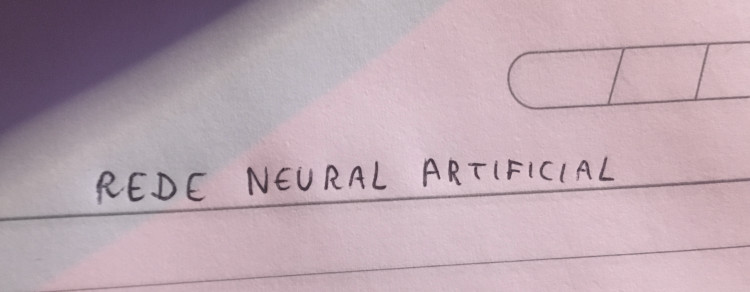 REDE NEURAL ARTIFICIAL